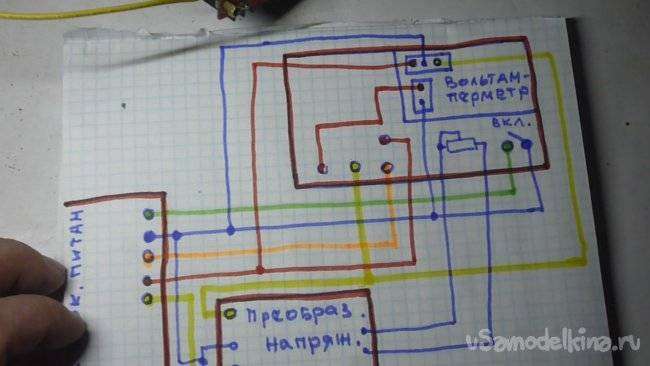 Вольтам-
перметр
вкл.
Преобраз.
напряж.
vSamodelkina.ru